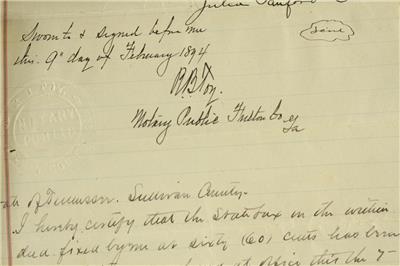 Julia Sanford
Seal
Sworn to & signed before me
this. 9" day of February 1894
R. B. Toy.
Notary Public Fulton Co, Ga
of Tennessee. Sullivan County.
I hereby certify that the State tax on the within
deed fixed by me at sixty (60) cents has been
at office this the 7